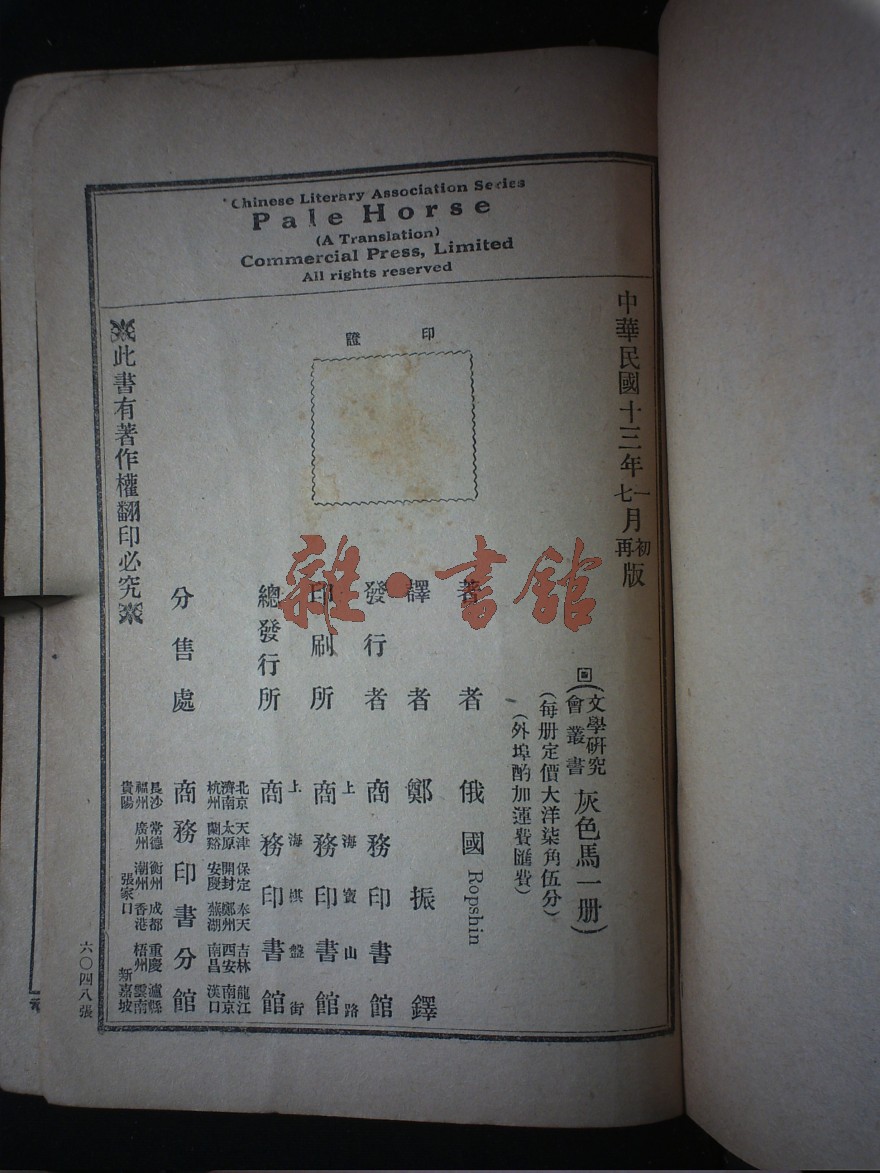 Chinese Literary Association Series
Pale Horse
(A Translation)
Commercial Press, Limited
All rights reserved
中華民國十三年一月初版
七月再版
(文學研究會叢書 灰色馬一册)
(每册定價大洋柒角伍分)
(外埠酌加運費匯費)
著者 俄國 Ropshin
譯者 鄭振鐸
發行者 商務印書館
上海寶山路
印刷所 商務印書館
上海棋盤街
總發行所 商務印書館
北京 天津 保定 奉天 吉林 龍江
濟南 太原 開封 鄭州 西安 南京
杭州 蘭谿 安慶 蕪湖 南昌 漢口
分售處 商務印書分館
長沙 常德 衡州 成都 重慶 瀘縣
福州 廣州 潮州 香港 梧州 雲南
貴陽 張家口 新嘉坡
印證
此書有著作權翻印必究
六〇四八張
雜·書館